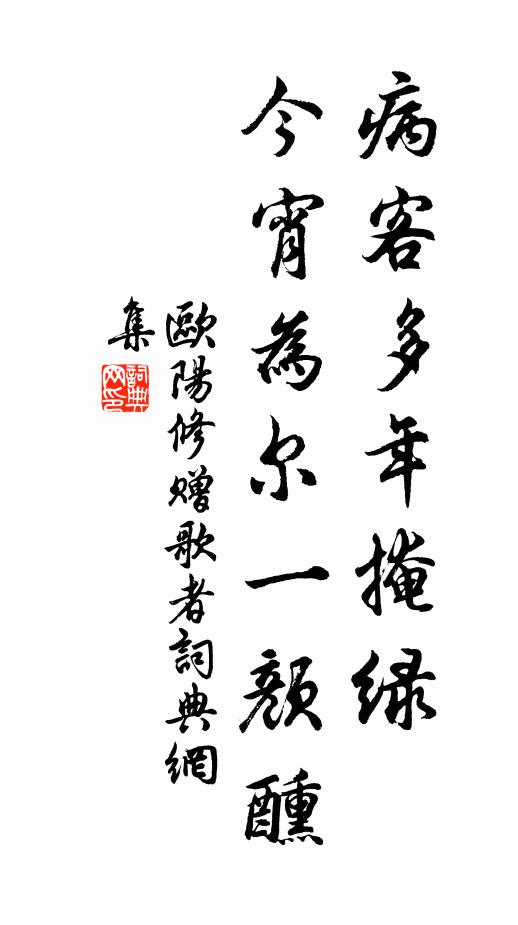 病客多年掩绿
今宵為尔一顏醺
歐陽修赠歌者詞典網
集
詞典
网印